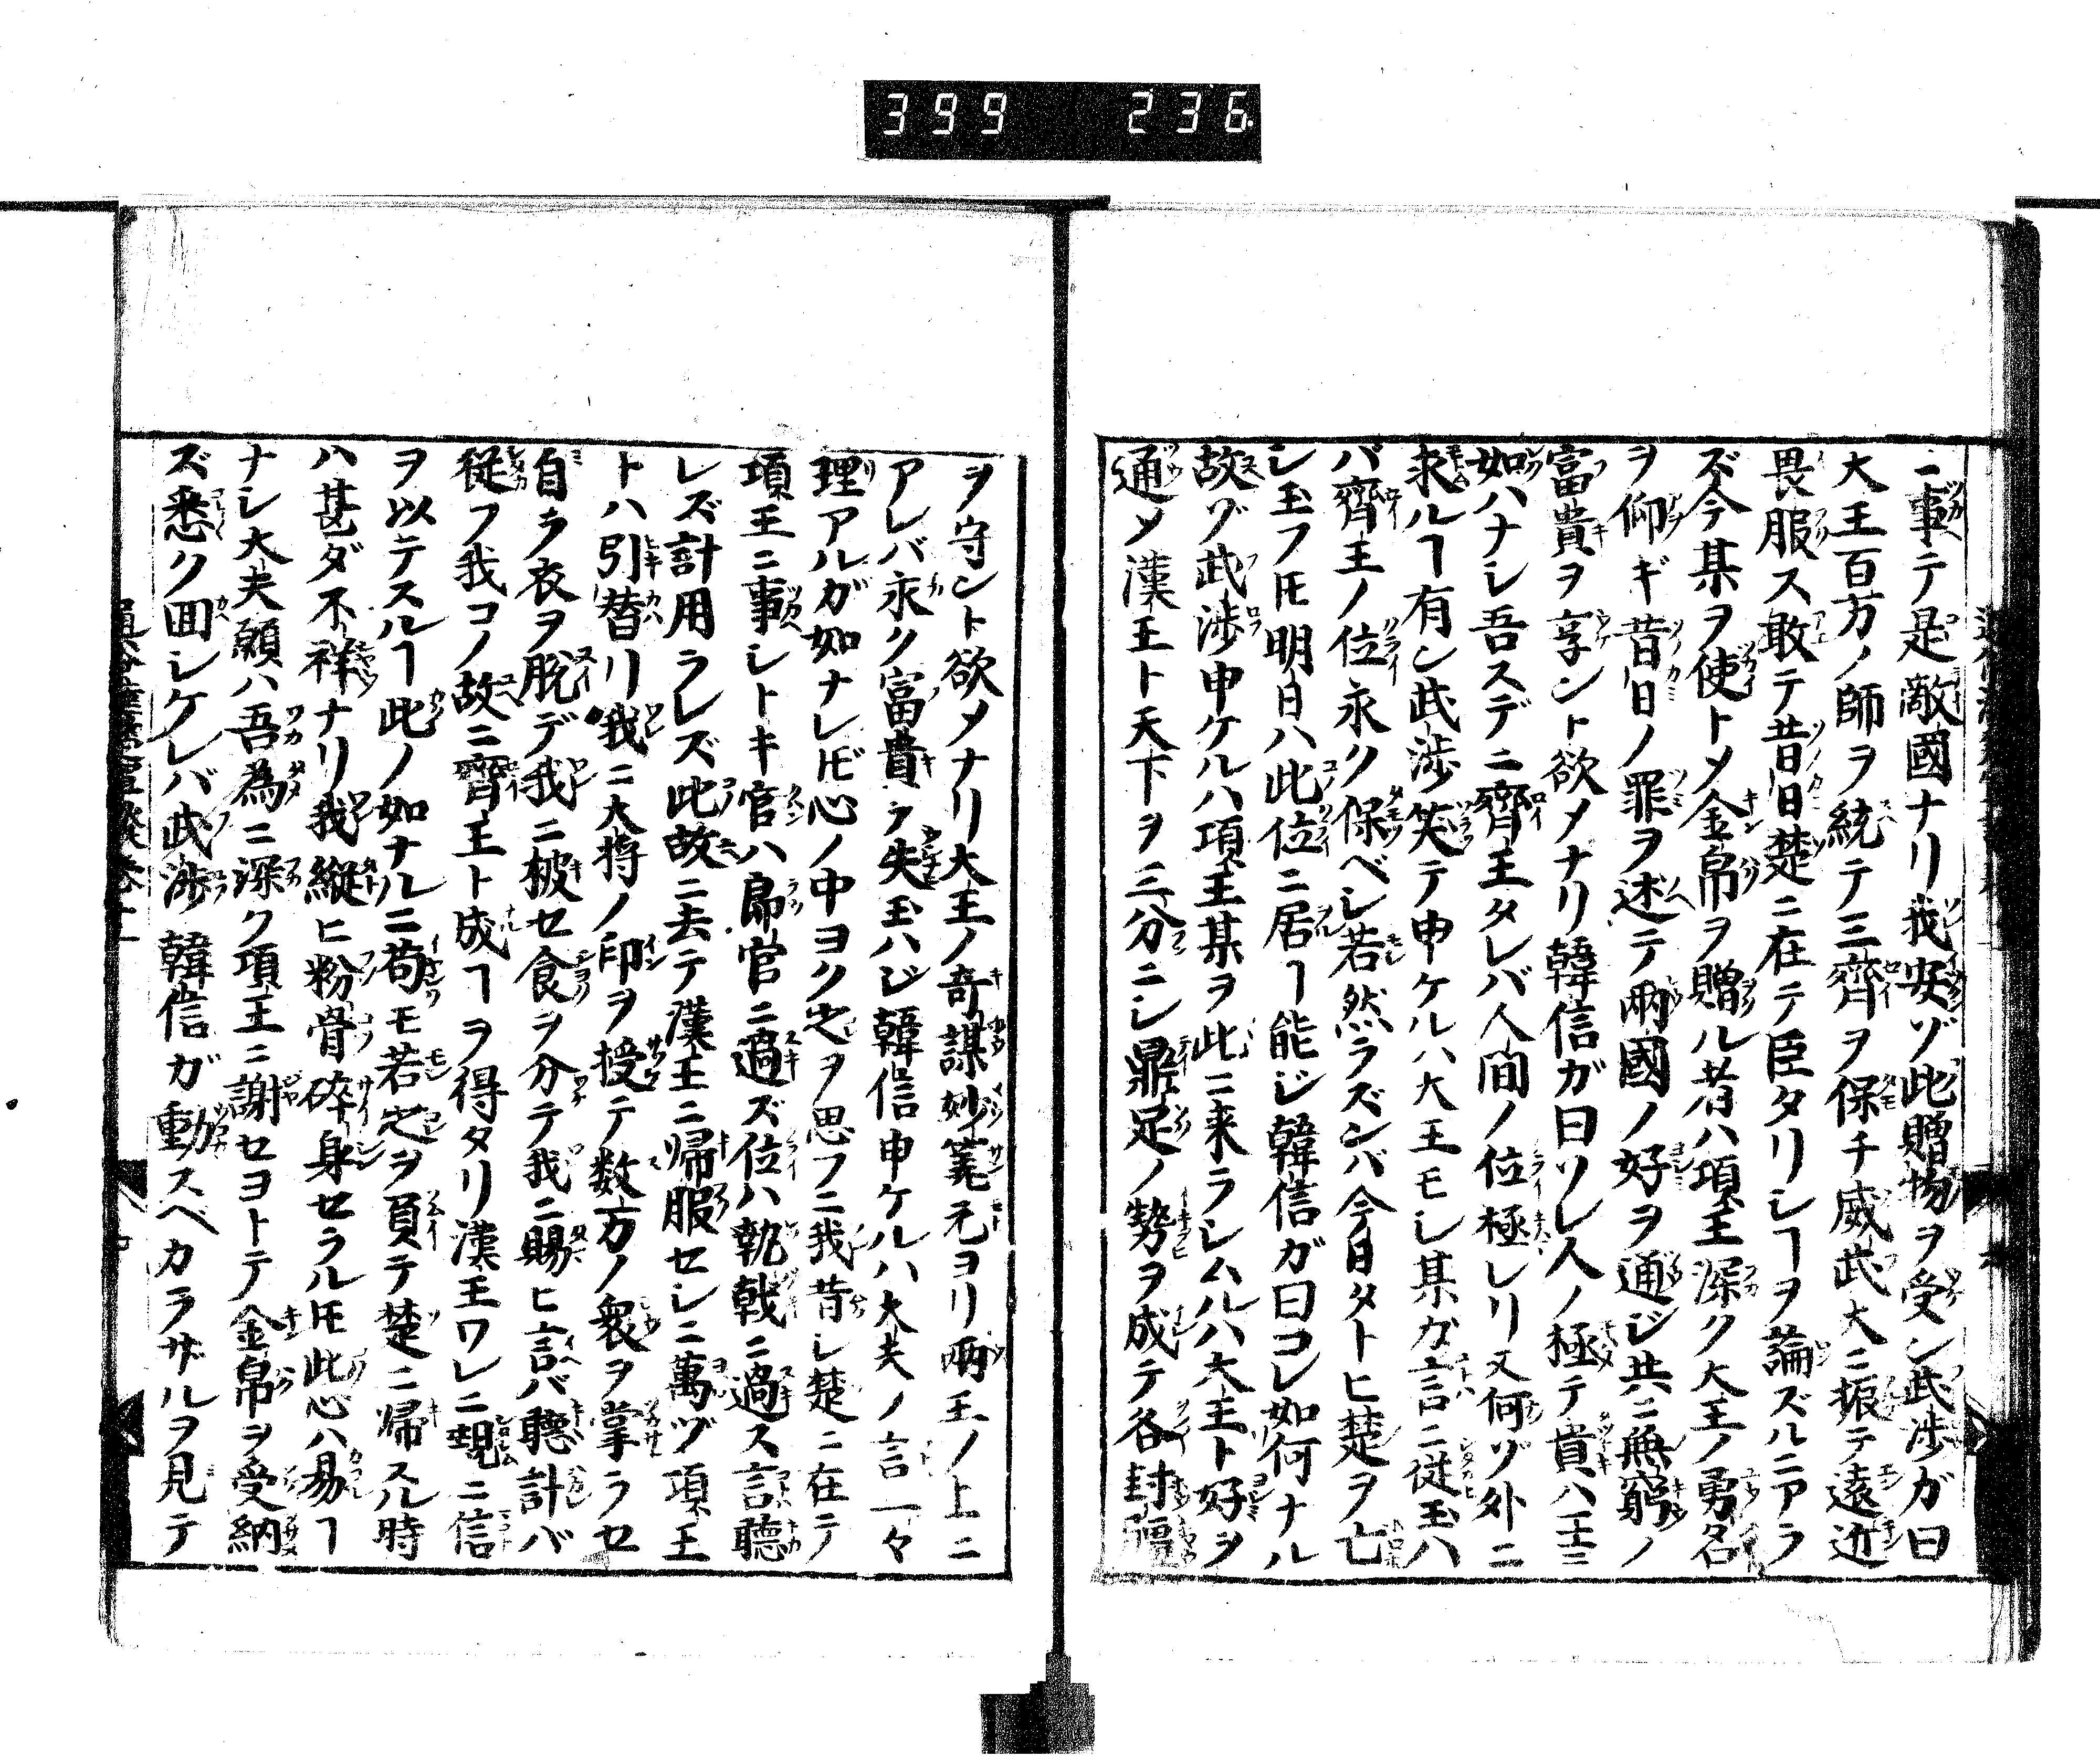 399 236
ニ事テ是敵國ナリ我安ゾ此贈物ヲ受ン武渉ガ曰
大王百万ノ師ヲ統テ三齊ヲ保チ威武大ニ振テ遠近
畏服ス敢テ昔日楚ニ在テ臣タリシヿヲ論ズルニアラ
ズ今某ヲ使トメ金帛ヲ贈ル者ハ項王深ク大王ノ勇名
ヲ仰ギ昔日ノ罪ヲ述テ兩國ノ好ヲ通ジ共ニ無窮ノ
富貴ヲ享ント欲メナリ韓信ガ曰ソレ人ノ極テ貴ハ王ニ
如ハナシ吾スデニ齊王タレバ人間ノ位極レリ又何ゾ外ニ
求ルヿ有ン武渉笑テ申ケルハ大王モシ某ガ言ニ従玉ハ
バ齊王ノ位永ク保ベシ若然ラズンバ今日タトヒ楚ヲ亡
シ玉フ𪜈明日ハ此位ニ居ヿ能ジ韓信ガ曰コレ如何ナル
故ゾ武渉申ケルハ項王某ヲ此ニ来ラシムルハ大王ト好ヲ
通メ漢王ト天下ヲ三分ニシ鼎足ノ勢ヲ成テ各封疆
ヲ守ント欲メナリ大王ノ奇謀妙筭元ヨリ兩王ノ上ニ
アレバ永ク富貴ヲ失玉ハジ韓信申ケルハ大夫ノ言一々
理アルガ如ナレ𪜈心ノ中ヨク之ヲ思フニ我昔シ楚ニ在テ
項王ニ事シトキ官ハ郎官ニ過ズ位ハ執戟ニ過ス言聴
レズ計用ラレズ此故ニ去テ漢王ニ帰服セシニ萬ヅ項王
トハ引替リ我ニ大将ノ印ヲ授テ数万ノ衆ヲ掌ラセ
自ラ衣ヲ脱デ我ニ被セ食ヲ分テ我ニ賜ヒ言バ聴計バ
従フ我コノ故ニ齊王ト成ヿヲ得タリ漢王ワレニ親ニ信
ヲ以テスルヿ此ノ如ナルニ苟モ若之ヲ負テ楚ニ帰スル時
ハ甚ダ不祥ナリ我縦ヒ粉骨碎身セラル𪜈此心ハ易ヿ
ナシ大夫願ハ吾為ニ深ク項王ニ謝セヨトテ金帛ヲ受納
ズ悉ク囬シケレバ武渉韓信ガ動スベカラザルヲ見テ